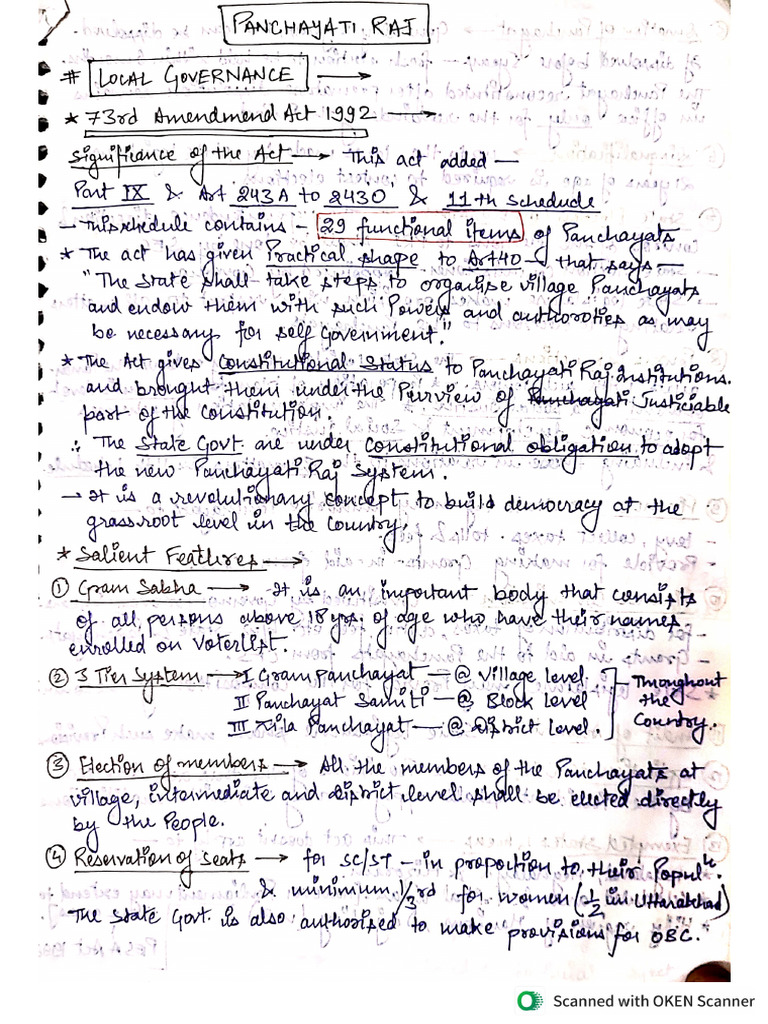 PANCHAYATI RAJ
# LOCAL GOVERNANCE →
* 73rd Amendmend Act 1992 →
Significance of the Act → This act added —
Part IX & Art 243A to 243O & 11th schedule
— This schedule contains — 29 functional items of Panchayats
* The act has given Practical shape to Art 40 — that says —
"The State shall take steps to organise village Panchayats
and endow them with such Powers and authorities as may
be necessary for self Government."
* The Act gives Constitutional Status to Panchayati Raj institutions.
and brought them under the Purview of Panchayati Justiciable
part of the constitution.
∴ The State Govt are under constitutional obligation to adopt
the new Panchayati Raj System.
→ It is a revolutionary concept to build democracy at the
grassroot level in the Country.
* Salient Features →
① Gram Sabha → It is an important body that consists
of all persons above 18 yrs. of age who have their names
enrolled on Voterlist.
② 3 Tier System → I Gram Panchayat — @ Village level.
II Panchayat Samiti — @ Block level
III Zila Panchayat — @ District Level.
Throughout
the
Country.
③ Election of members → All the members of the Panchayats at
village, intermediate and district level shall be elected directly
by the People.
④ Reservation of Seats → for SC/ST — in proportion to their Populⁿ.
& minimum 1/3rd for women (1/2 in Uttarakhad)
The State Govt. is also authorised to make provisions for OBC.
Scanned with OKEN Scanner